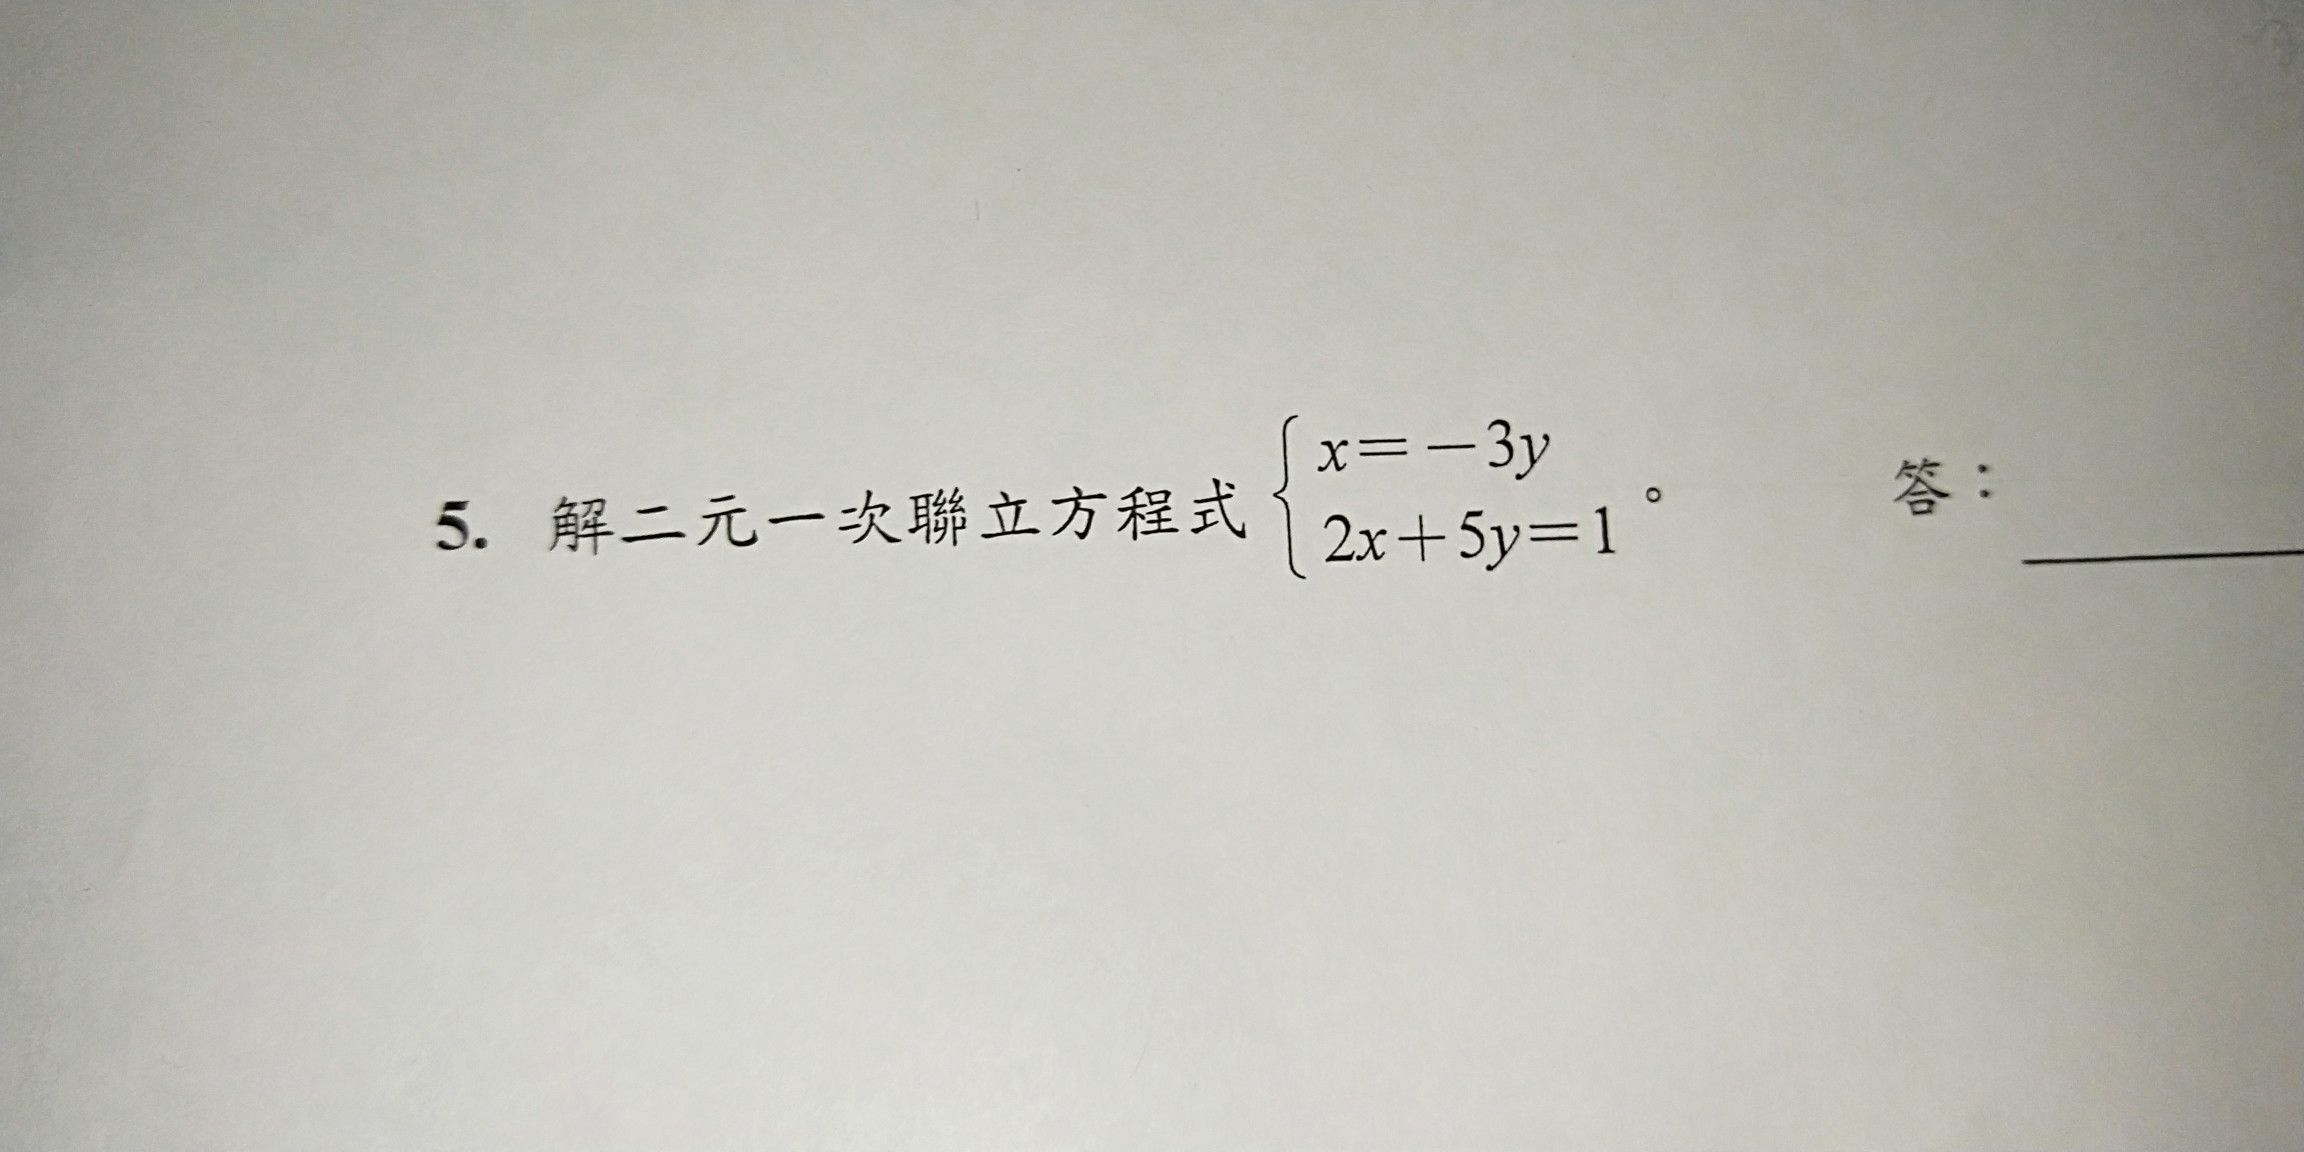 5. 解二元一次聯立方程式 { x=-3y
2x+5y=1 。 答：